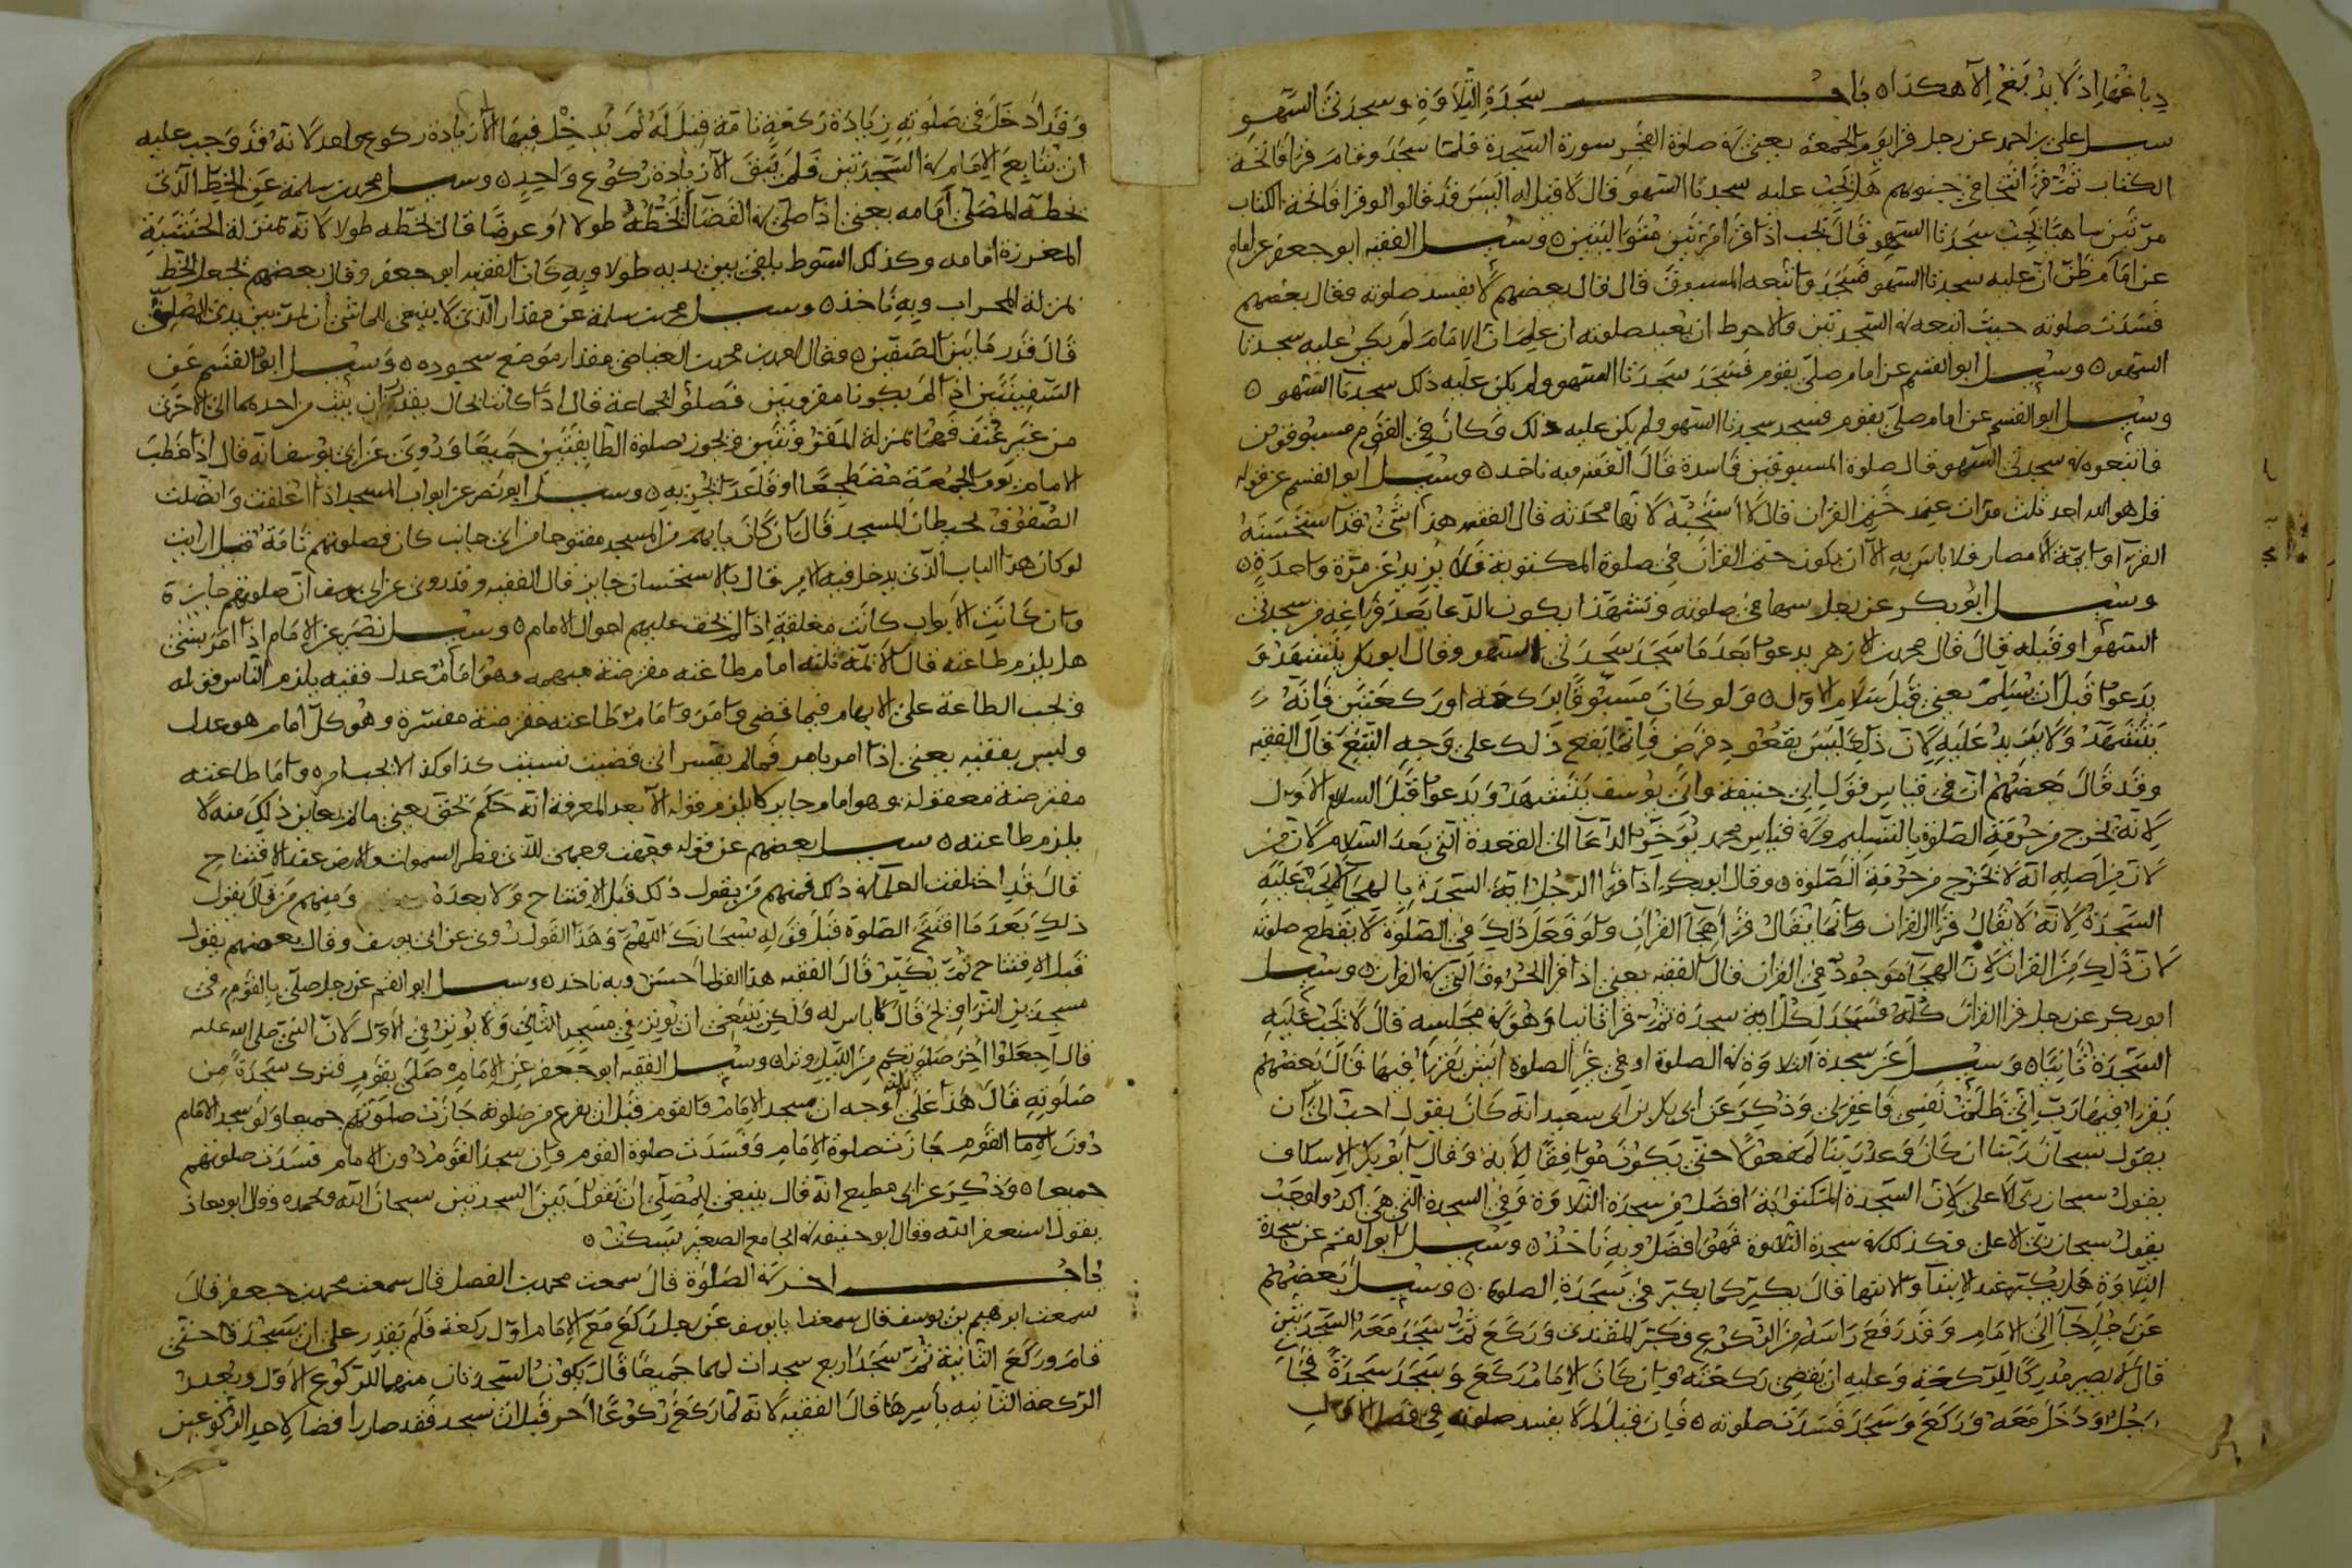 دباغها اذ لا يدبغ الا هكذا ٥ باب سجدة التلاوة وسجدتى السهو
سيل على بن احمد عن رجل قرا يوم الجمعة يعنى فى صلوة الفجر سورة السجدة فلما سجد وقام قرا فاتحة
الكتاب ثم قرا تتجافى جنوبهم هل يجب عليه سجدتا السهو قال لا قيل له اليس قد قالوا لو قرا فاتحة الكتاب
مرتين ساهيا يجب سجدتا السهو قال يجب اذا قرا مرتين متواليتين ٥ وسيل الفقيه ابو جعفر عن امام
عن امام ظن ان عليه سجدتا السهو فسجد وتابعه المسبوق قال قال بعضهم لا يفسد صلوته وقال بعضهم
فسدت صلوته حيث اتبعه فى السجدتين والاحوط ان يعيد صلوته ان علم ان الامام لم يكن عليه سجدتا
السهو ٥ وسيل ابو القسم عن امام صلى بقوم فسجد سجدتا السهو ولم يكن عليه ذلك سجدتا السهو ٥
وسيل ابو القسم عن امام صلى بقوم فسجد سجدتا السهو ولم يكن عليه ذلك وكان فى القوم مسبوقون
فاتبعوه فى سجدتى السهو قال صلوة المسبوقين فاسدة قال الفقيه وبه ناخذ ٥ وسيل ابو القسم عن قوله
قل هو الله احد ثلث مرات عند ختم القران قال لا استحبه لانها محدثة قال الفقيه هذا شى قد استحسنه
القرا وائمة الامصار فلا باس به الا ان يكون ختم القران فى صلوة المكتوبة فلا يزيد عن مرة واحدة ٥
وسيل ابو بكر عن رجل سها فى صلوته وتشهد ايكون الدعا بعد فراغه من سجدتى
السهو او قبله قال قال محمد بن الازهر يدعو بعد ما سجد سجدتى السهو وقال ابو بكر يتشهد و
يدعو قبل ان يسلم يعنى قبل سلام الاول ٥ ولو كان مسبوقا بركعة او ركعتين فانه
يتشهد ولا يزيد عليه لان ذلك ليس بقعود فرض فانما يقع ذلك على وجه التبع قال الفقيه
وقد قال بعضهم ان فى قياس قول ابى حنيفة وابى يوسف يتشهد ويدعو قبل السلام الاول
لانه يخرج من حرمة الصلوة بالتسليم وفى قياس محمد يوخر الدعا الى القعدة التى بعد السلام لان من
لان من اصله انه لا يخرج من حرمة الصلوة ٥ وقال ابو بكر اذا قرا الرجل اية السجدة بالهجا لا يجب عليه
السجدة لانه لا يقال قرا القران وانما يقال قرا هجا القران ولو فعل ذلك فى الصلوة لا يقطع صلوته
لان ذلك من القران لان الهجا موجود فى القران قال الفقيه يعنى اذا قرا الحروف التى فى القران ٥ وسيل
ابو بكر عن رجل قرا القران كله فسجد لكل اية سجدة ثم قرا ثانيا وهو فى مجلسه قال لا يجب عليه
السجدة ثانيا ٥ وسيل عن سجدة التلاوة فى الصلوة او فى غير الصلوة ايش يقرا فيها قال بعضهم
يقرا فيها رب انى ظلمت نفسى فاغفر لى وذكر عن ابى بكر بن ابى سعيد انه كان يقول احب الى ان
يقول سبحان ربنا ان كان وعد ربنا لمفعولا حتى يكون موافقا للاية وقال ابو بكر الاسكاف
يقول سبحان ربى الاعلى لان السجدة المكتوبة افضل من سجدة التلاوة وفى السجدة التى هى اكد واوجب
يقول سبحان ربى الاعلى وكذلك فى سجدة التلاوة فهو افضل وبه ناخذ ٥ وسيل ابو القسم عن سجدة
التلاوة هل يكبر عند الابتدا والانتها قال يكبر كما يكبر فى سجدة الصلوة ٥ وسيل بعضهم
عن رجل جا الى الامام وقد رفع راسه من الركوع فكبر المقتدى وركع ثم سجد معه السجدتين
قال لا يصير مدركا للركعة وعليه ان يقضى ركعته وان كان الامام ركع وسجد سجدة فجا
رجل ودخل معه وركع وسجد فسدت صلوته ٥ فان قيل لم لا يفسد صلوته فى فصل الاول
وقد ادخل فى صلوته زيادة ركعة تامة قيل له لم يدخل فيها الا زيادة ركوع واحد لانه قد وجب عليه
ان يتابع الامام فى السجدتين فلم يبق الا زيادة ركوع واحد ٥ وسيل محمد بن سلمة عن الخط الذى
يخطه المصلى امامه يعنى اذا صلى فى الفضا ايخطه طولا او عرضا قال يخطه طولا لانه بمنزلة الخشبة
المغرزة امامه وكذلك السوط يلقى بين يديه طولا وبه كان الفقيه ابو جعفر وقال بعضهم يجعل الخط
بمنزلة المحراب وبه ناخذ ٥ وسيل محمد بن سلمة عن مقدار الذى لا ينبغى للماشى ان يمر بين يدى المصلى
قال قدر ما بين الصفين ٥ فقال محمد بن محمد العياضى مقدار موضع سجوده ٥ وسيل ابو القسم عن
السفينتين اذا لم يكونا مقرونتين فصلوا بجماعة قال اذا كانتا بحال يقدر ان يثب من احدهما الى الاخرى
من غير عنف فهما بمنزلة المقرونتين ويجوز صلوة الطايفتين جميعا وروى عن ابى يوسف انه قال اذا خطب
الامام يوم الجمعة مضطجعا او قاعدا يجزيه ٥ وسيل ابو نصر عن ابواب المسجد اذا اغلقت واتصلت
الصفوف بحيطان المسجد قال ان كان بابهم من المسجد مفتوحا من اى جانب كان فصلوتهم تامة قيل ارايت
لو كان هذا الباب الذى يدخل فيه الامير قال بالاستحسان جايز قال الفقيه وقد روى عن ابى يوسف ان صلوتهم جايزة
وان كانت الابواب كانت مغلقة اذا لم يخف عليهم احوال الامام ٥ وسيل نصر عن الامام اذا امر بشى
هل يلزم طاعته قال الائمة ثلثة امام طاعته مفترضة مبهمة وهو امام عدل فقيه يلزم الناس قوله
ويجب الطاعة على الابهام فيما قضى وامر وامام طاعته مفترضة مفسرة وهو كل امام هو عدل
وليس بفقيه يعنى اذا امر بامر فما لم يفسر انى قضيت بسبب كذا وكذا لا يجب امره واما طاعته
مفترضة معقولة وهو امام جاير لا يلزم قوله الا بعد المعرفة انه حكم بحق يعنى ما لم يعاين ذلك منه لا
يلزم طاعته ٥ سيل بعضهم عن قوله وجهت وجهى للذى فطر السموات والارض عند الافتتاح
قال قد اختلفت العلما فى ذلك فمنهم من يقول ذلك قبل الافتتاح ولا بعده ومنهم من قال يقول
ذلك بعد ما افتتح الصلوة قبل قوله سبحانك اللهم وهذا القول روى عن ابى يوسف وقال بعضهم يقول
قبل الافتتاح ثم يكبر قال الفقيه هذا القول احسن وبه ناخذ ٥ وسيل ابو القسم عن رجل صلى بالقوم فى
مسجدين التراويح قال لا باس له ولكن ينبغى ان يوتر فى مسجد الثانى ولا يوتر فى الاول لان النبى صلى الله عليه
قال اجعلوا اخر صلوتكم من الليل وترا ٥ وسيل الفقيه ابو جعفر عن الامام صلى بقوم فترك سجدة من
صلوته قال هذا على ثلثة اوجه ان سجد الامام والقوم قبل ان يفرغ من صلوته جازت صلوتهم جميعا ولو سجد الامام
دون القوم جازت صلوة الامام وفسدت صلوة القوم وان سجد القوم دون الامام فسدت صلوتهم
جميعا ٥ وذكر عن ابى مطيع انه قال ينبغى للمصلى ان يقول بين السجدتين سبحان الله وبحمده وقال ابو معاذ
يقول استغفر الله وقال ابو حنيفة فى الجامع الصغير يسكت ٥
باب اخر فى الصلوة قال سمعت محمد بن الفضل قال سمعت محمد بن جعفر قال
سمعت ابرهيم بن يوسف قال سمعت ابا يوسف عن رجل ركع مع الامام اول ركعة فلم يقدر على ان يسجد حتى
قام وركع الثانية ثم سجد اربع سجدات لهما جميعا قال يكون السجدتان منهما للركوع الاول ويعيد
الركعة الثانية باسرها قال الفقيه لانه لما ركع ركوعا اخر قبل ان سجد فقد صار رافضا لاحد الركوعين